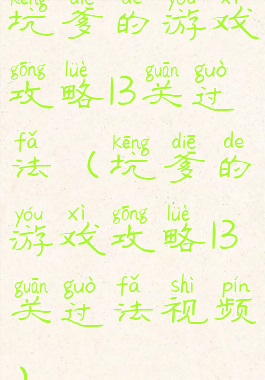 kēng diē de yóu xì
坑爹的游戏
gōng lüè guān guò
攻略13关过
fǎ kēng diē de
法（坑爹的
yóu xì gōng lüè
游戏攻略13
guān guò fǎ shì pín
关过法视频
）